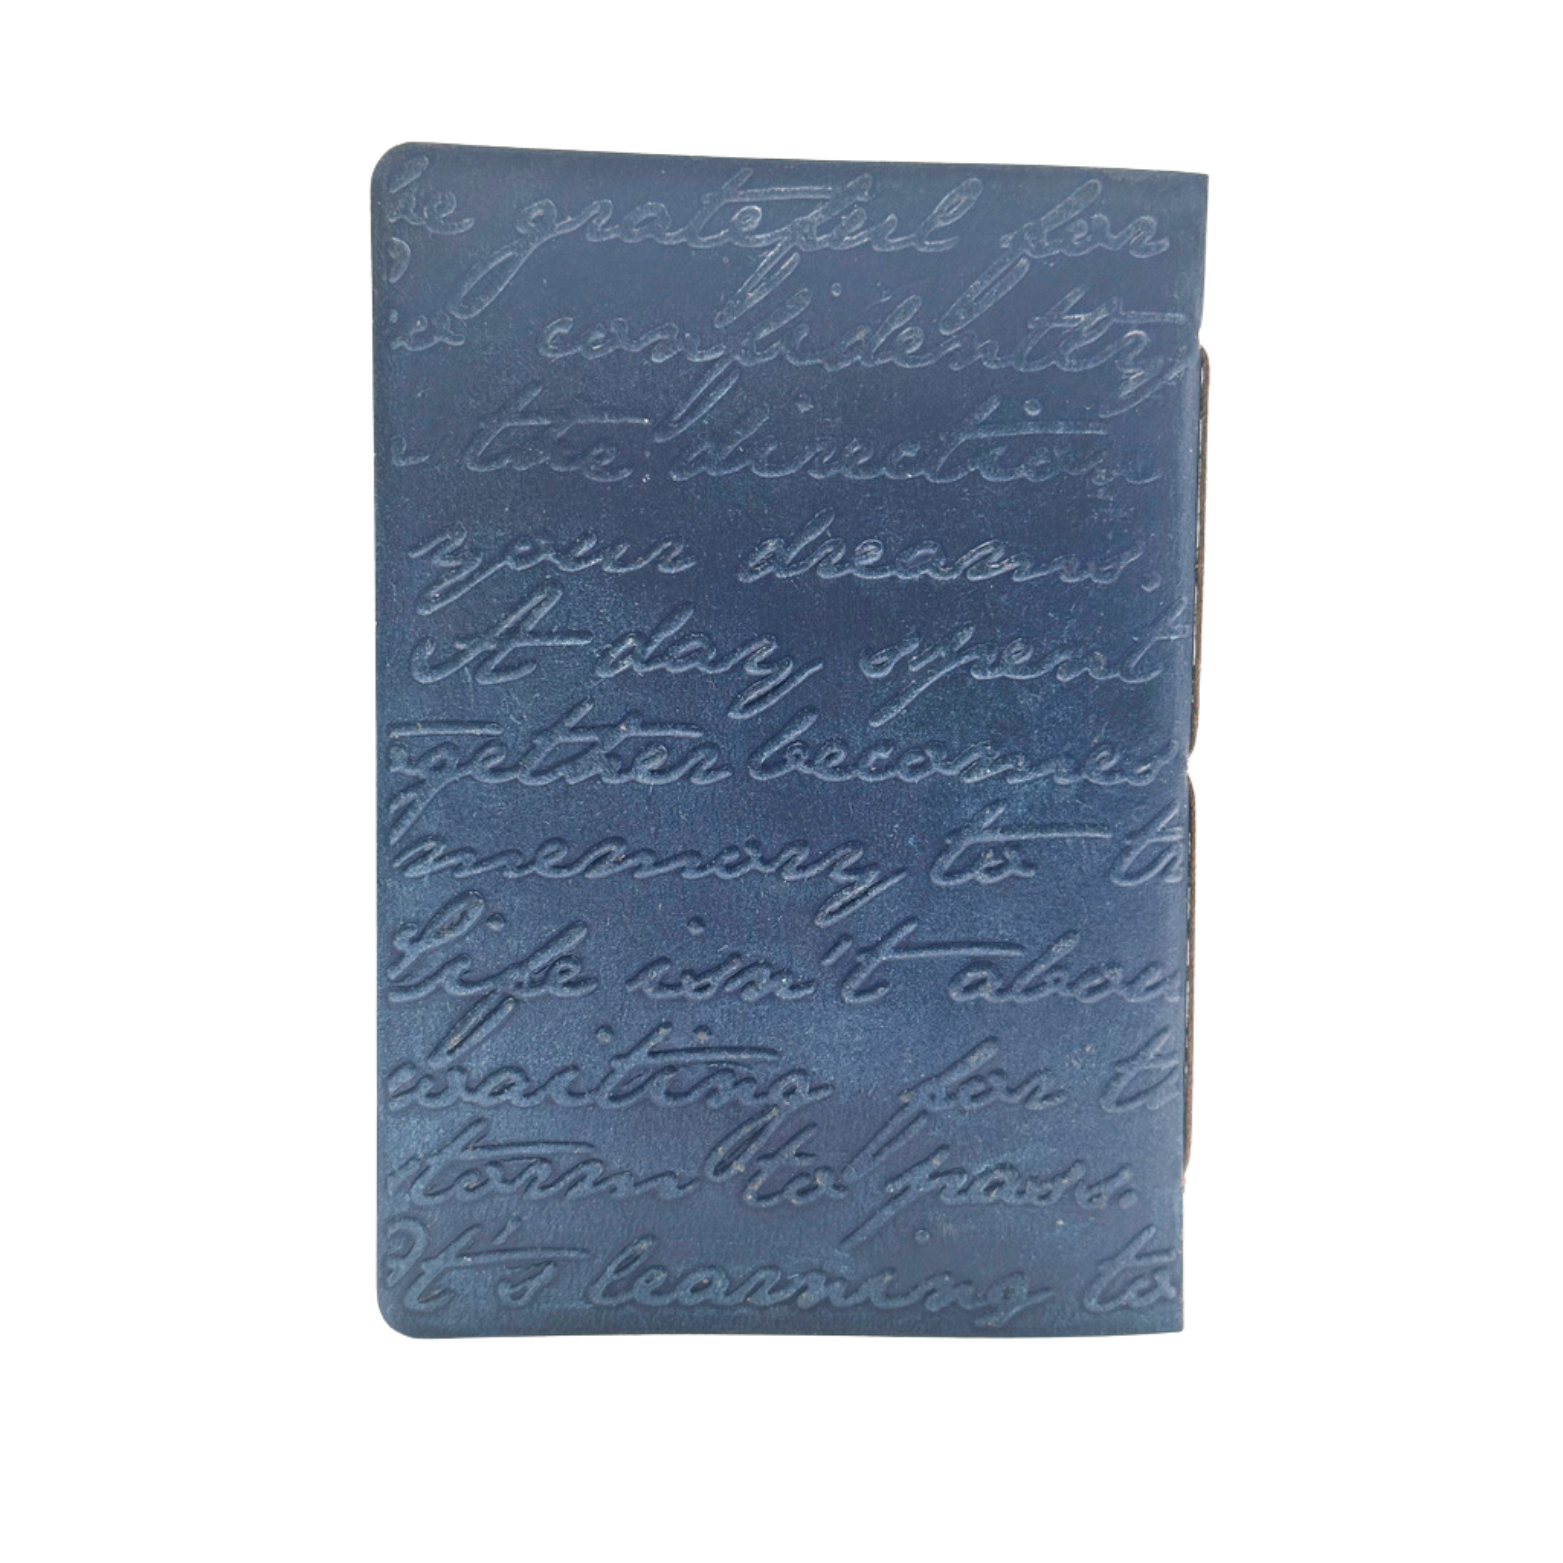 be grateful for
confidently
the direction
your dreams.
A day spent
ogether becomes
memory to tr
Life isn't abou
waiting for th
storm to pass.
It's learning to